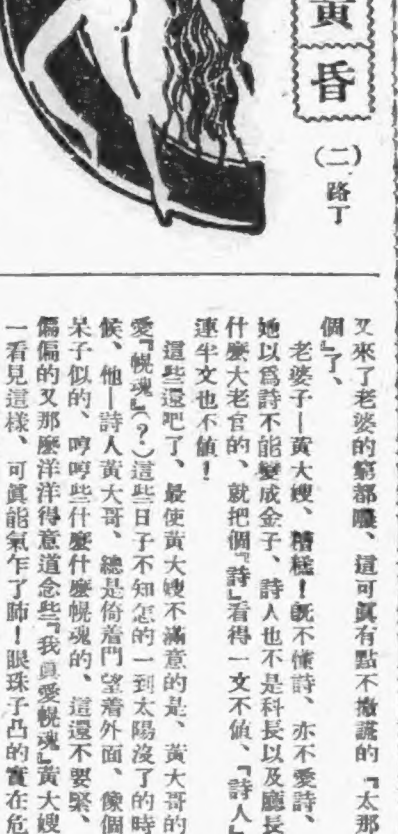 黃昏
(二)
路丁
又來了老婆的窮都囔、這可眞有點不撒謊的『太那
個』了、
老婆子—黃大嫂、糟糕!旣不懂詩、亦不愛詩、
她以爲詩不能變成金子、詩人也不是科長以及廳長
什麽大老官的、就把個『詩』看得一文不值、『詩人』
連半文也不値!
這些還吧了、最使黃大嫂不滿意的是、黃大哥的
愛『幌魂』(?)這些日子不知怎的一到太陽沒了的時
候、他—詩人黃大哥、總是倚着門望着外面、像個
呆子似的、哼哼些什麽什麽幌魂的、這還不要緊、
偏偏的又那麽洋洋得意道念些『我眞愛幌魂』黃大嫂
一看見這樣、可眞能氣乍了肺!眼珠子凸的實在危